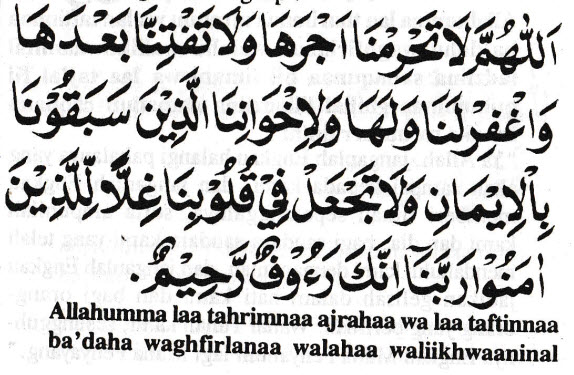 اَللّٰهُمَّ لَا تَحْرِمْنَا اَجْرَهَا وَلَا تَفْتِنَّا بَعْدَهَا
وَاغْفِرْلَنَا وَلَهَا وَلِاِخْوَانِنَا الَّذِيْنَ سَبَقُوْنَا
بِالْاِيْمَانِ وَلَا تَجْعَلْ فِيْ قُلُوْبِنَا غِلًّا لِّلَّذِيْنَ
اٰمَنُوْا رَبَّنَا اِنَّكَ رَءُوْفٌ رَّحِيْمٌ.
Allahumma laa tahrimnaa ajrahaa wa laa taftinnaa
ba'daha waghfirlanaa walahaa waliikhwaaninal